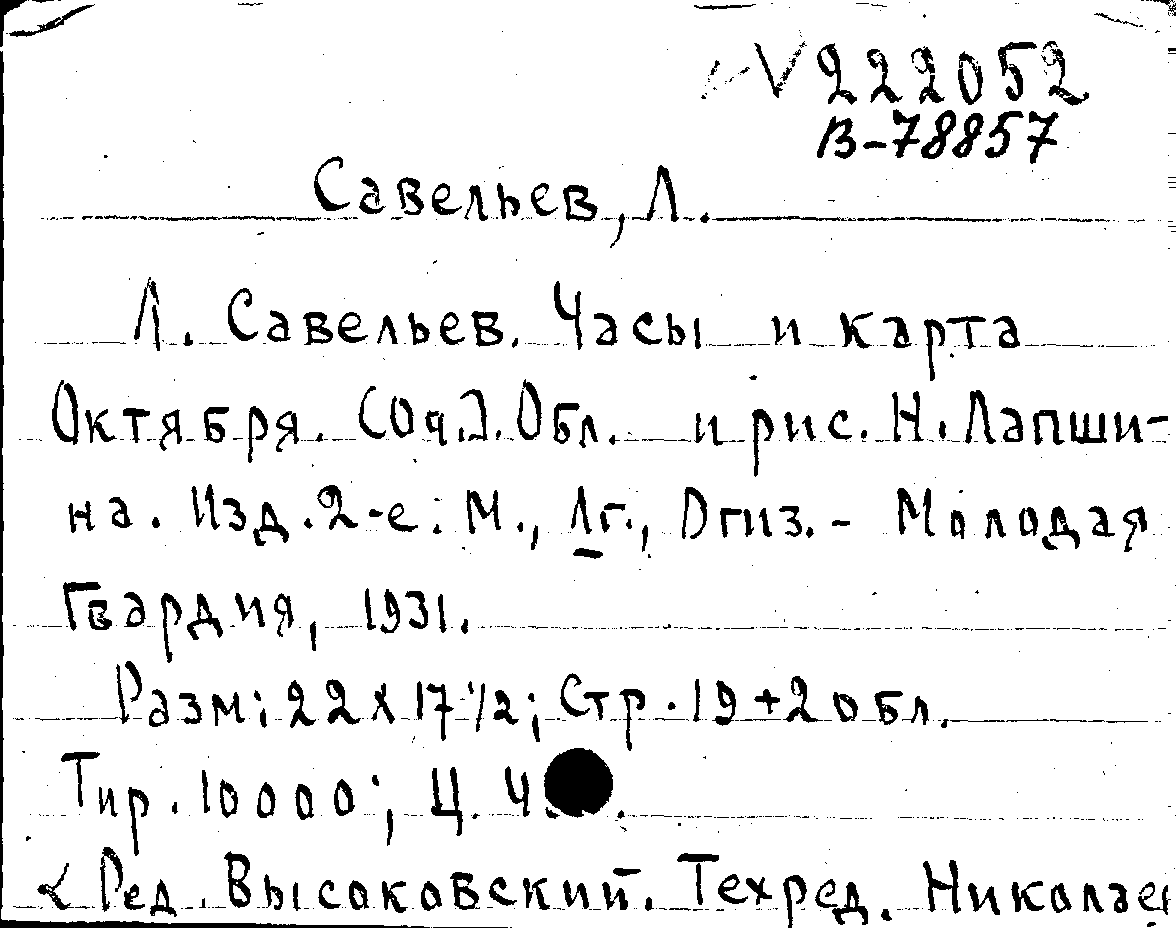 V 222052
В-78857
Савельев, Л.
Л. Савельев. Часы и карта
Октября. [Оч.]. Обл. и рис. Н. Лапши-
на. Изд. 2-е. М., Лг., Огиз. - Молодая
Гвардия, 1931.
Разм: 22 х 17 1/2; Стр. 19 + 2 обл.
Тир. 10000; Ц. Ч
Ред. Высоковский. Техред.